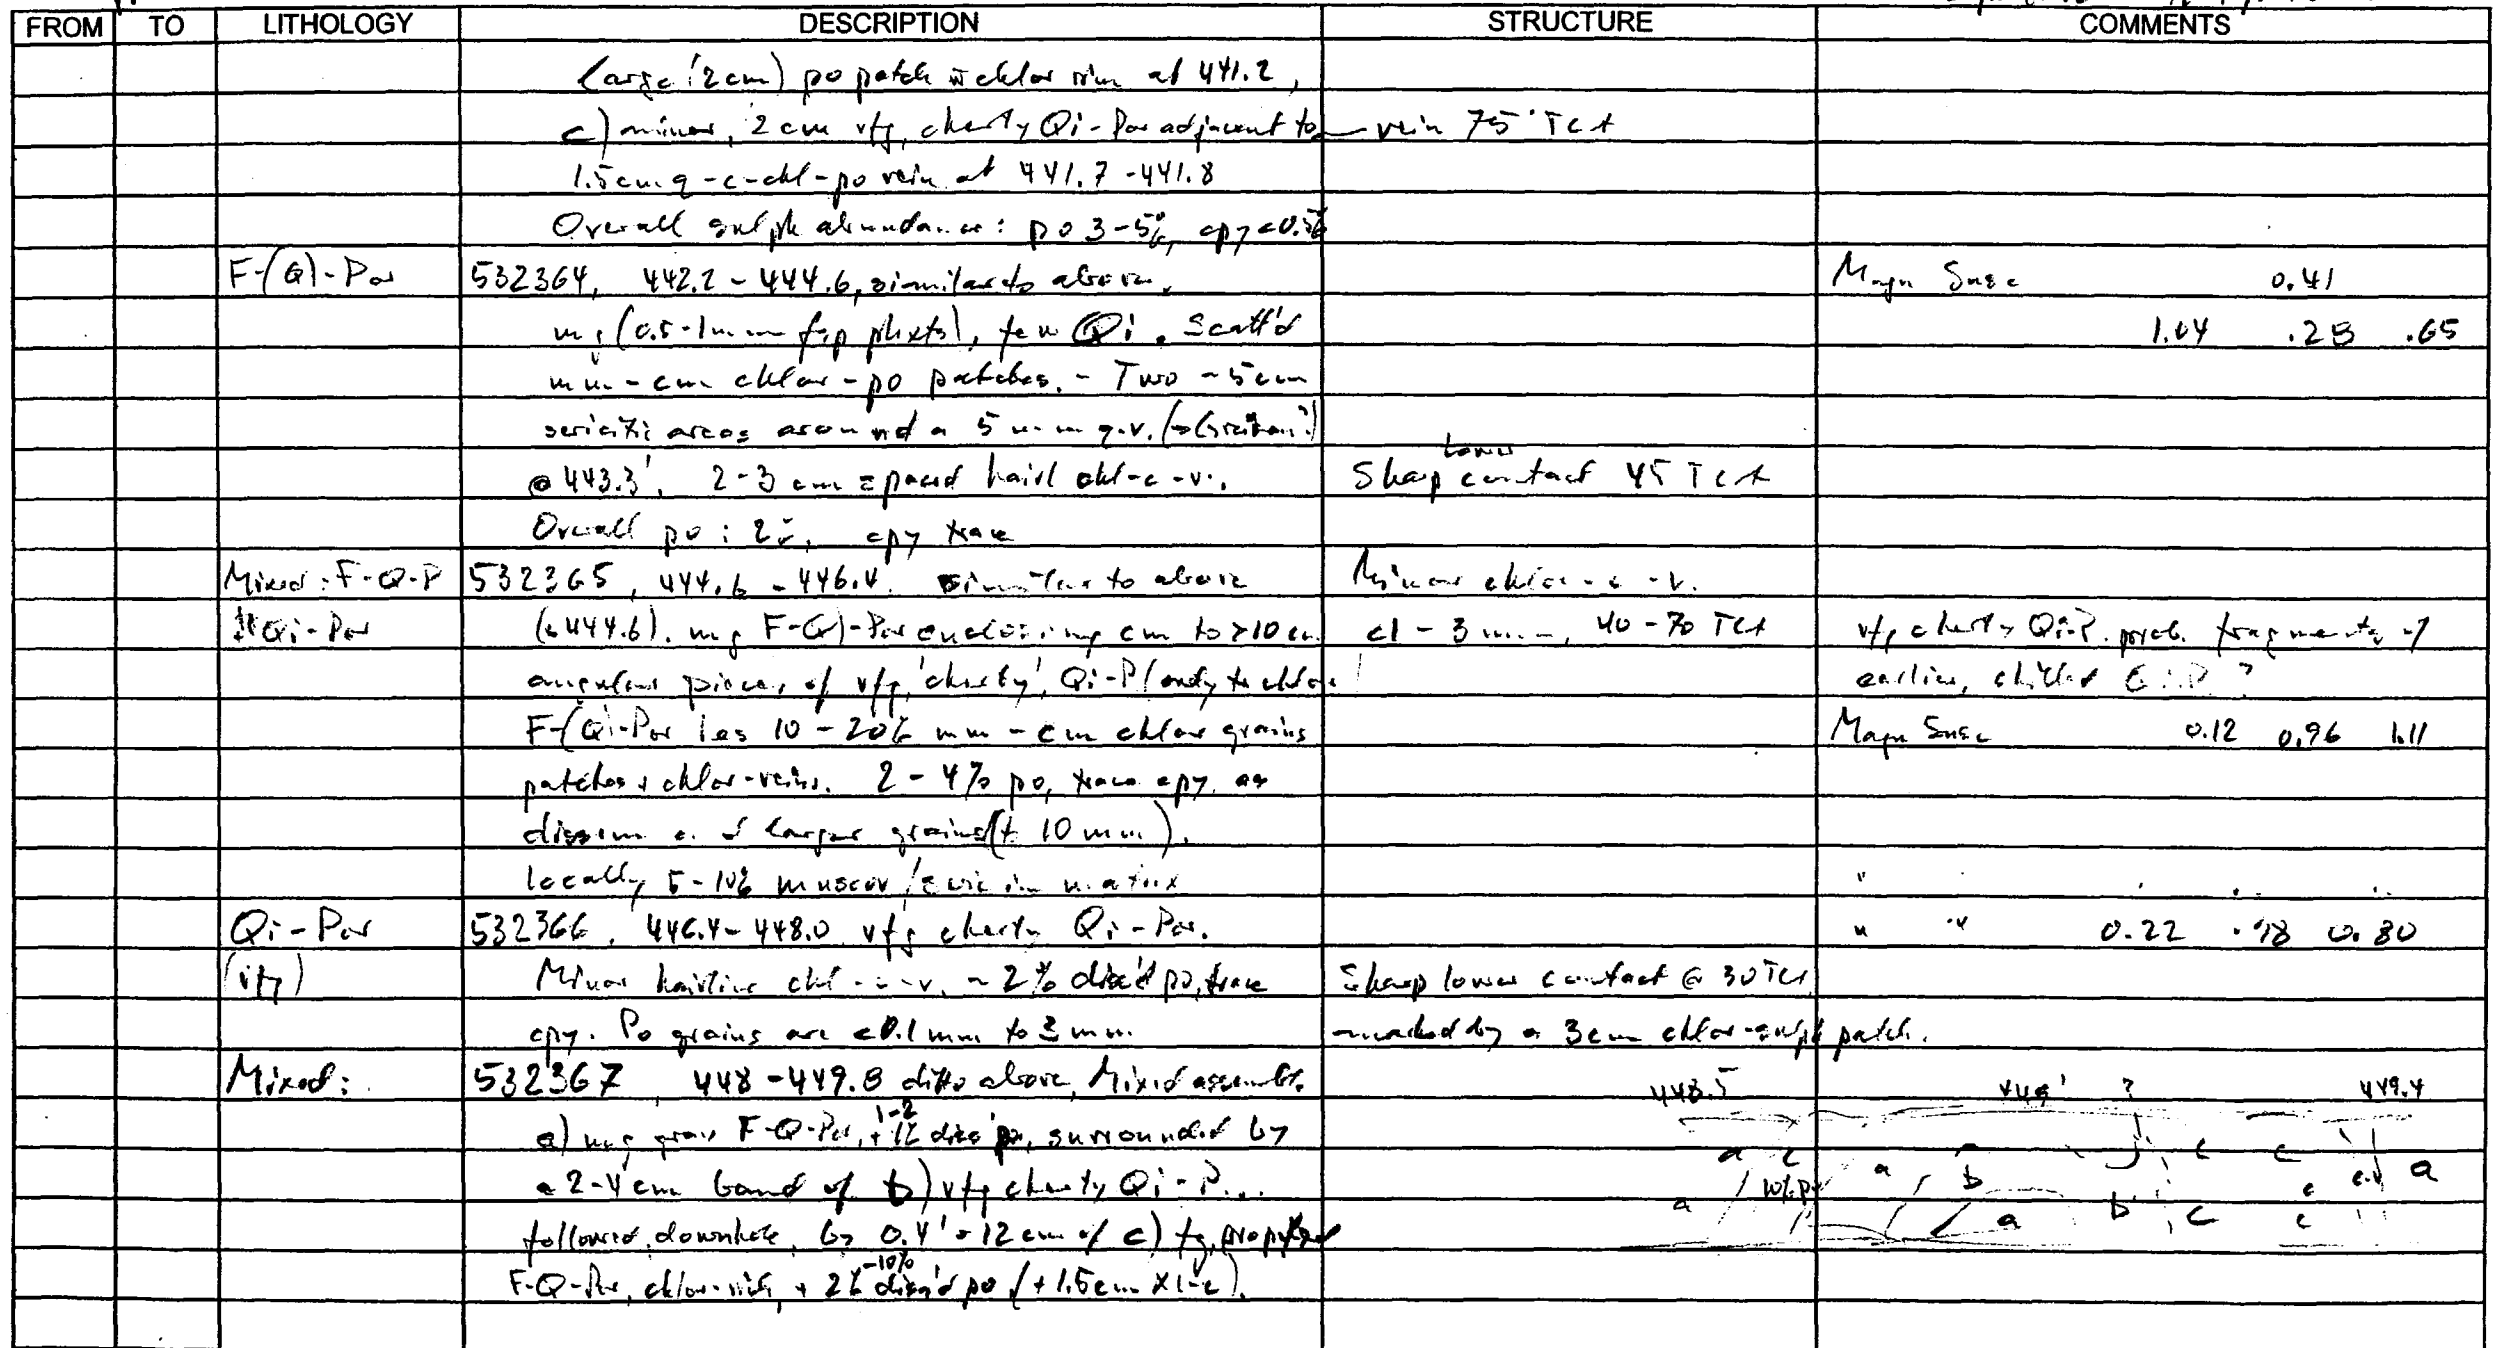 FROM TO LITHOLOGY DESCRIPTION STRUCTURE COMMENTS
Large (2cm) po patch w chlor rim at 441.2,
c) minor, 2 cm vfg, cherty Qi-Por adjacent to vein 75° TCA
1.5cm q-c-chl-po vein at 441.7-441.8
Overall sulph abundance: po 3-5%, cpy <0.5%
F-(Q)-Por 532364, 442.2-444.6, similar to above, Magn Susc 0.41
mg (0.5-1mm fsp phxts), few Qi. Scatt'd 1.04 .28 .65
mm-cm chlor-po patches. - Two ~5cm
sericitic areas around a 5mm q.v.
@ 443.3', 2-3 cm spaced hairl chl-c-v. Sharp lower contact 45 TCA
Overall po: 2%, cpy trace
Mixed: F-Q-P 532365, 444.6-446.4. similar to above Minor chlor-c-v.
Qi-Por (444.6). mg F-(Q)-Por enclosing cm to >10 cm <1-3 mm, 40-70 TCA vfg cherty Qi-P. prob. fragments of
angular pieces of vfg, 'cherty', Qi-P earlier, chilled ?
F-(Q)-Por has 10-20% mm-cm chlor grains Magn Susc 0.12 0.96 1.11
patches + chlor-veins. 2-4% po, trace cpy, as
dissem larger grains (to 10 mm).
locally 5-10% muscov/seric in matrix " "
Qi-Por 532366, 446.4-448.0 vfg cherty Qi-Por. " " 0.22 .98 0.80
(vfg) Minor hairline chl-c-v. ~2% diss'd po, trace Sharp lower contact @ 30 TCA
cpy. Po grains are <0.1mm to 3 mm. marked by a 3cm chlor-sulph patch.
Mixed: 532367 448-449.8 ditto above, Mixed assembl. 448.5 449' ? 449.4
a) mg gray F-Q-Por, + 1-2% diss po, surrounded by
a 2-4cm band of b) vfg cherty Qi-P... a c a b c c c.v a
followed downhole, by 0.4' = 12 cm of c) fg, a 10% po a b c c
F-Q-Por, chlor-rich, + 2%-10% diss'd po (+ 1.5cm